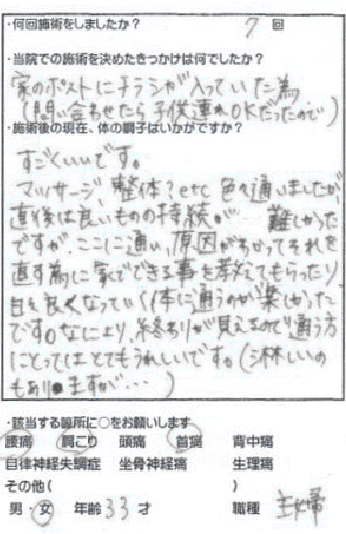 ・何回施術をしましたか？ 7 回
・当院での施術を決めたきっかけは何でしたか？
家のポストにチラシが入っていた為
(問い合わせたら子供連れOKだったので)
・施術後の現在、体の調子はいかがですか？
すごくいいです。
マッサージ、整体?etc 色々通いましたが、
直後は良いものの持続が 難しかった
ですが、ここに通い、原因がわかってそれを
直す為に家でできる事を教えてもらったり、
日々良くなっていく体に通うのが楽しかった
です。なにより、終わりが見えるので通う方
にとってはとてもうれしいです。(淋しいの
もありますが…)
・該当する箇所に○をお願いします
腰痛 肩こり 頭痛 首痛 背中痛
自律神経失調症 坐骨神経痛 生理痛
その他( )
男・女 年齢 33 才 職種 主婦